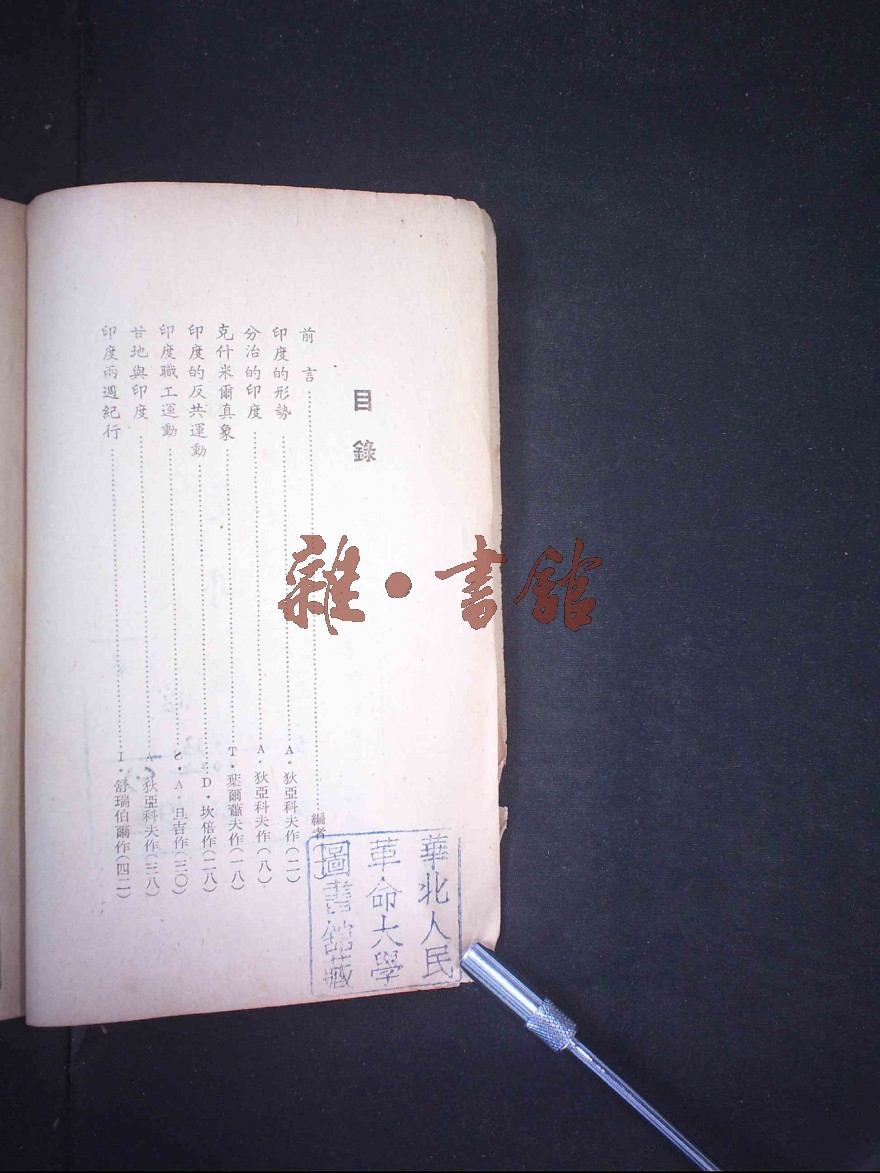 目錄
前言……編者
印度的形勢……A·狄亞科夫作(二)
分治的印度……A·狄亞科夫作(八)
克什米爾真象……T·葉爾蕭夫作(一八)
印度的反共運動……D·坎倍作(二八)
印度職工運動……S·A·旦吉作(三〇)
甘地與印度……A·狄亞科夫作(三八)
印度兩週紀行……I·舒瑞伯爾作(四二)
華北人民
革命大學
圖書館藏
雜·書館